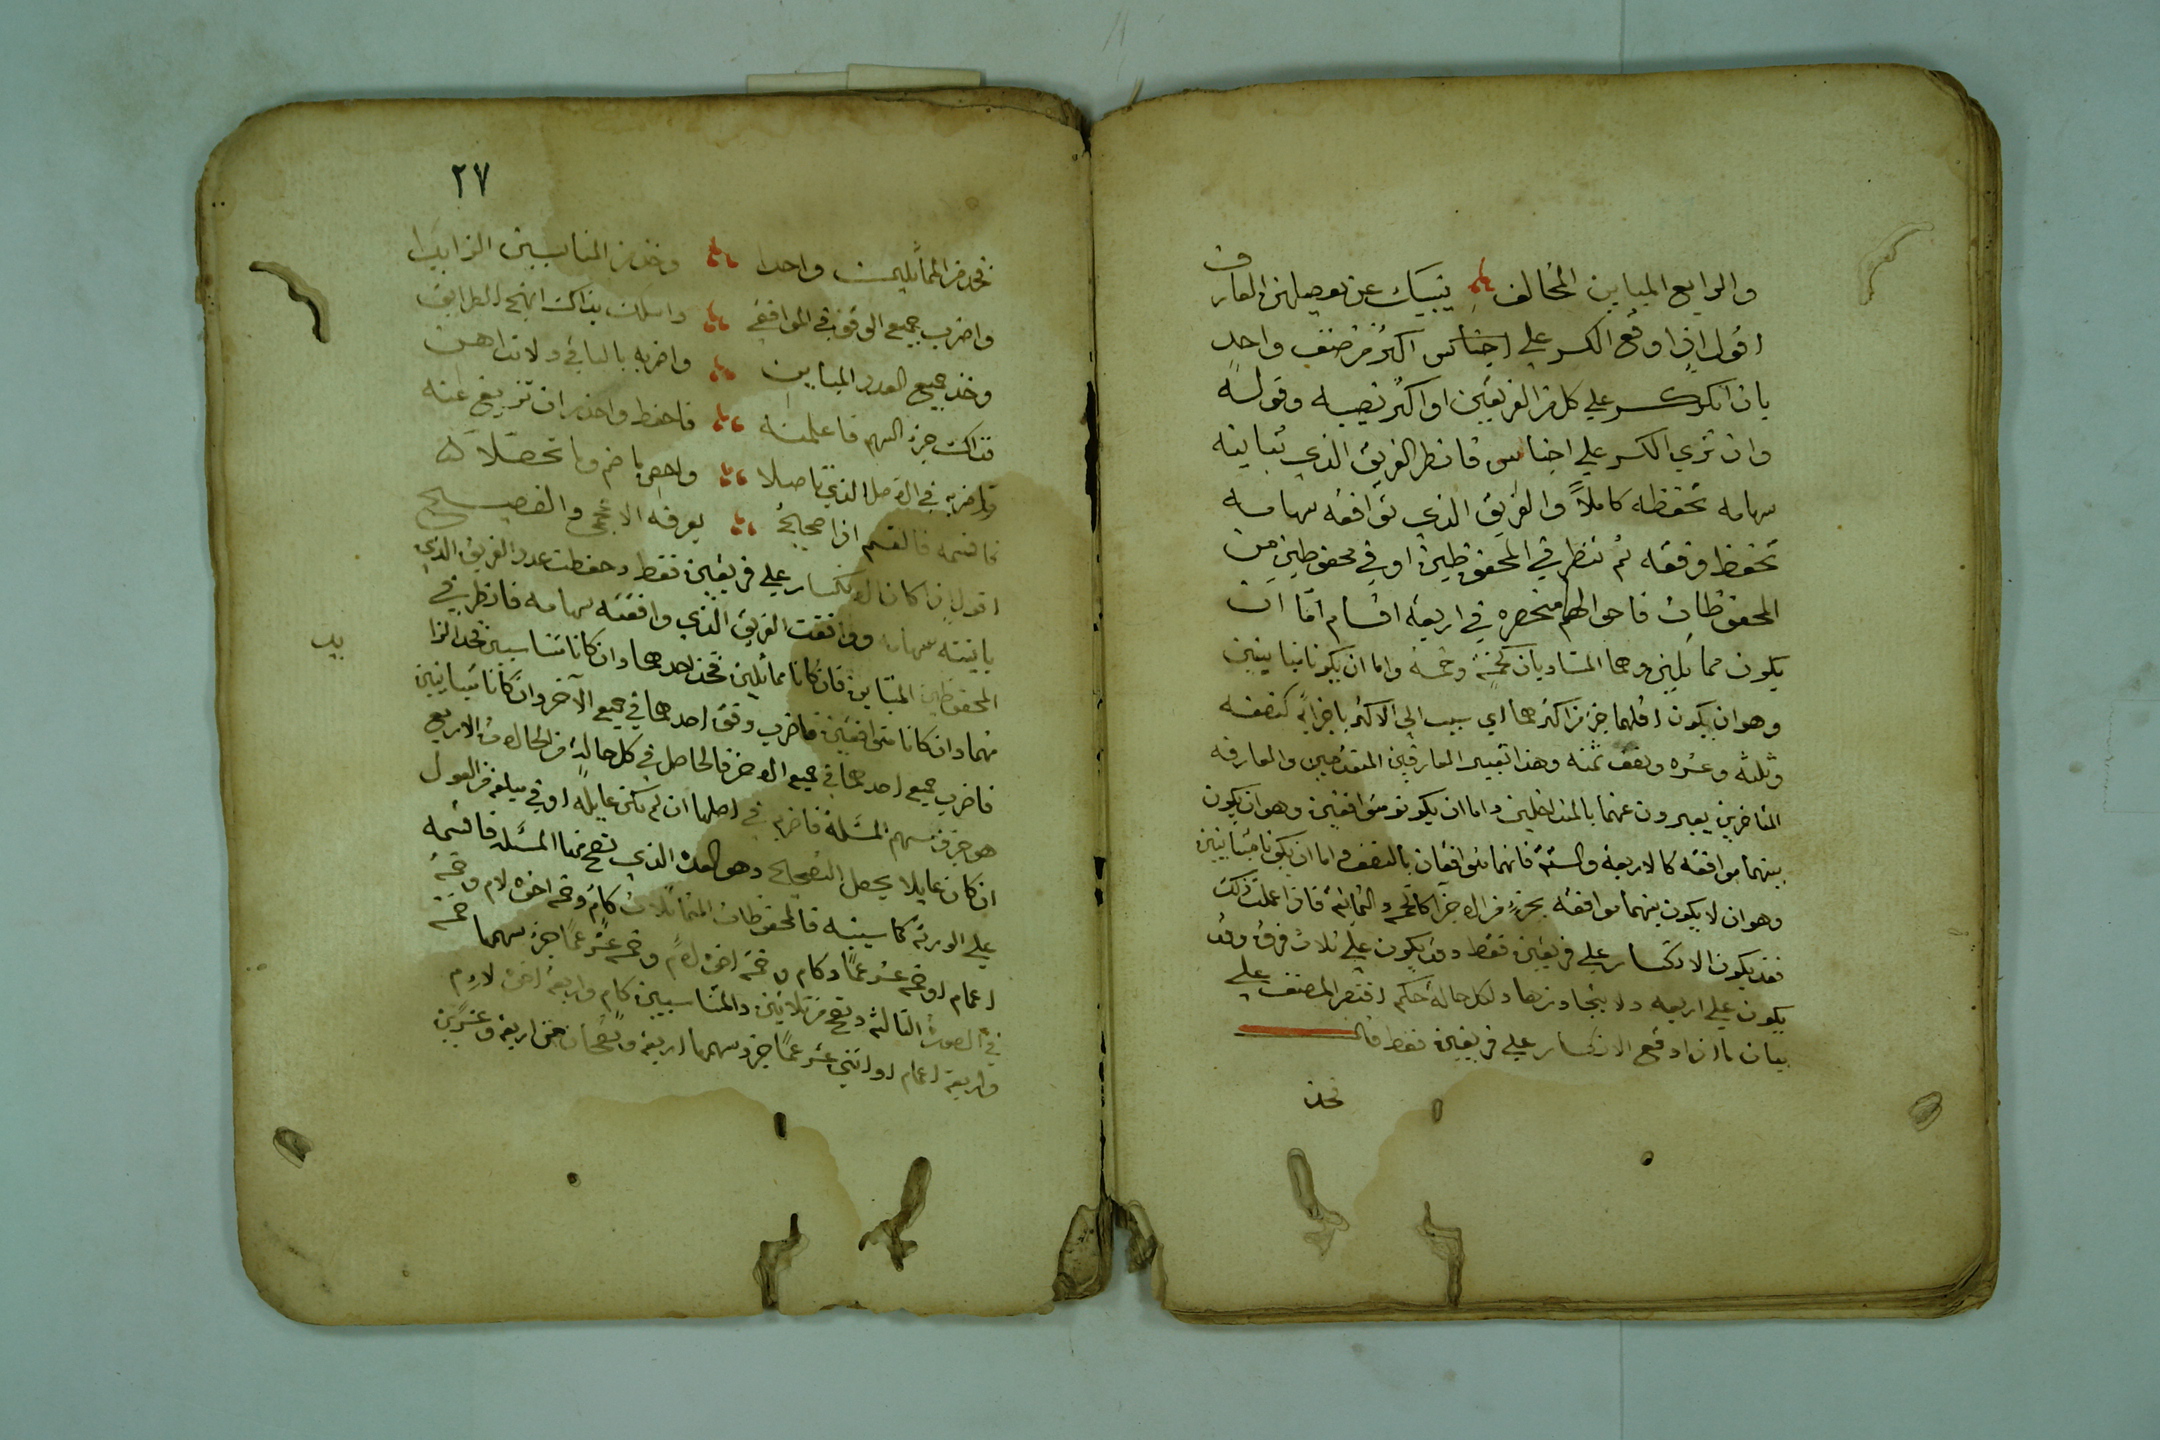 والرابع المباين المخالف ينبيك عن تفصيلهن العارف
اقول اذا وقع الكسر علي اجناس اكثر من صنف واحد
بان انكسر علي كل من الفريقين او اكثر نصيبه وقوله
وان تري الكسر علي اجناس فانظر الفريق الذي تباينه
سهامه تحفظه كاملاً والفريق الذي توافقه سهامه
تحفظ وفقه ثم تنظر في المحفوظين او في محفوظين من
المحفوظات فاحوالهم منحصره في اربعة اقسام امّا ان
يكون مماثلين وهما المتساويان كخمسة وخمسة واما ان يكونا متناسبين
وهو ان يكون اقلهما جزا من اكثرهما اي نسب الي الاكثر باجزايه كنصفه
وثلثه وعشره ونصف ثمنه وهذا تعبير العارفين المتقدمين والعارفه
المتاخرين يعبرون عنهما بالمتداخلين واما ان يكونو متوافقين وهو ان يكون
بينهما موافقه كالاربعة والستة فانهما متوافقان بالنصف واما ان يكونا متباينين
وهو ان لا يكون بينهما موافقه بجزءٍ من الاجزآ كالخمسه والثمانية فاذا علمت ذلك
فقد يكون الانكسار علي فريقين فقط وقد يكون علي ثلاث فرق وقد
يكون علي اربعه ولا يتجاوزها ولكل حالة حكم اقتصر المصنف علي
بيان ما اذا وقع الانكسار علي فريقين فقط قال
فخذ
٢٧
فخذ من المماثلين واحدا وخذ من المناسبين الزايدا
واضرب جميع الوفق في الموافق واسلك بذاك انهج الطرايق
وخذ جميع العدد المباين واضربه بالثاني ولا تداهن
فذاك جزء السهم فاعلمنه فاحفظ واحذر ان تزيغ عنه
واضربه في الاصل الذي تاصلا واحص ما ضم وما تحصّلا
فاقسمه فالقسم اذا صحيح يعرفه الاعجمي والفصيح
اقول اذا كان الانكسار علي فريقين فقط وحفظت عدد الفريق الذي
باينته سهامه ووافقت الفريق الذي وافقته سهامه فانظر في
المحفوظين المتباين فان كانا مماثلين فخذ احدهما وان كانا متناسبين فخذ الزا
يد
منهما وان كانا متوافقين فاضرب وفق احدهما في جميع الآخر وان كانا متباينين
فاضرب جميع احدهما في جميع الاخر فالحاصل في كل حالة من الحالات الاربع
هو جزء سهم المسئلة فاضربه في اصلها ان لم تكن عايلة او في مبلغه من العول
ان كان عايلا يحصل التصحيح وهو العدد الذي تصح منها المسئلة فاقسمه
علي الورثة كما سيبينه فالمحفوظان المتماثلان كام وخمسة اخوه لام وخمسة
اعمام او خمسة عشر عمّا وكام وخمسة اخوه لام وخمسة عشر عمّا جزء سهمها خمسة
في الصورة الثالثة وتصح من ثلاثين والمتناسبين كام واربعة اخوة لام
واربعة اعمام او اثني عشر عمّا جزء سهمها اربعة وتصحان من اربعة وعشرين